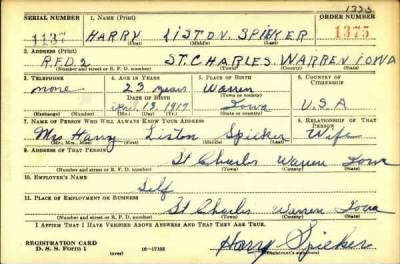 1335
SERIAL NUMBER 1. NAME (Print) ORDER NUMBER
1137 HARRY LISTON SPIEKER 1375
(First) (Middle) (Last)
2. ADDRESS (Print)
R.F.D. 2 ST. CHARLES WARREN IOWA
(Number and street or R. F. D. number) (Town) (County) (State)
3. TELEPHONE 4. AGE IN YEARS 5. PLACE OF BIRTH 6. COUNTRY OF CITIZENSHIP
none 23 years Warren
DATE OF BIRTH (Town or county)
Apr. 13, 1917 Iowa U.S.A
(Exchange) (Number) (Mo.) (Day) (Yr.) (State or country)
7. NAME OF PERSON WHO WILL ALWAYS KNOW YOUR ADDRESS 8. RELATIONSHIP OF THAT PERSON
Mrs Harry Liston Spieker Wife
(Mr., Mrs., Miss) (First) (Middle) (Last)
9. ADDRESS OF THAT PERSON
St Charles Warren Iowa
(Number and street or R. F. D. number) (Town) (County) (State)
10. EMPLOYER'S NAME
Self
11. PLACE OF EMPLOYMENT OR BUSINESS
St Charles Warren Iowa
(Number and street or R. F. D. number) (Town) (County) (State)
I AFFIRM THAT I HAVE VERIFIED ABOVE ANSWERS AND THAT THEY ARE TRUE.
REGISTRATION CARD
D. S. S. Form 1 (over) 16-17105 Harry Spieker
(Registrant's signature)